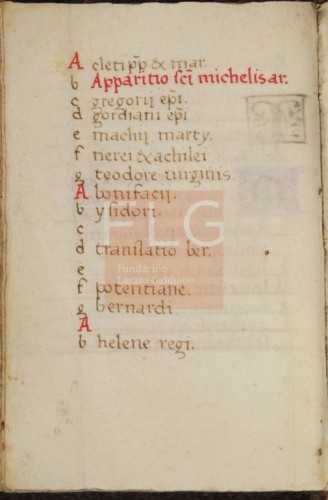 A cleti pp̄ & mar.
b Apparitio sc̄i michelis ar.
c gregorij ep̄i.
d gordiani ep̄i
e machij marty.
f nerei & achilei
g teodore uirginis.
A bonifacij.
b ysidori.
c
d translatio ber.
e
f potentiane.
g bernardi.
A
b helene regi.
FLG
Fundación
Lázaro Galdiano